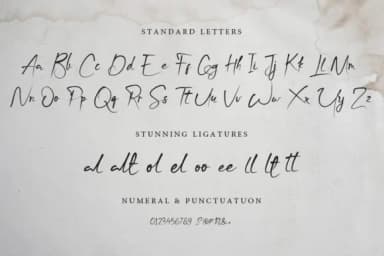 STANDARD LETTERS
Aa Bb Cc Dd Ee Ff Gg Hh Ii Jj Kk Ll Mm
Nn Oo Pp Qq Rr Ss Tt Uu Vv Ww Xx Yy Zz
STUNNING LIGATURES
al alt ol el oo ee ll lt tt
NUMERAL & PUNCTUATUON
0123456789